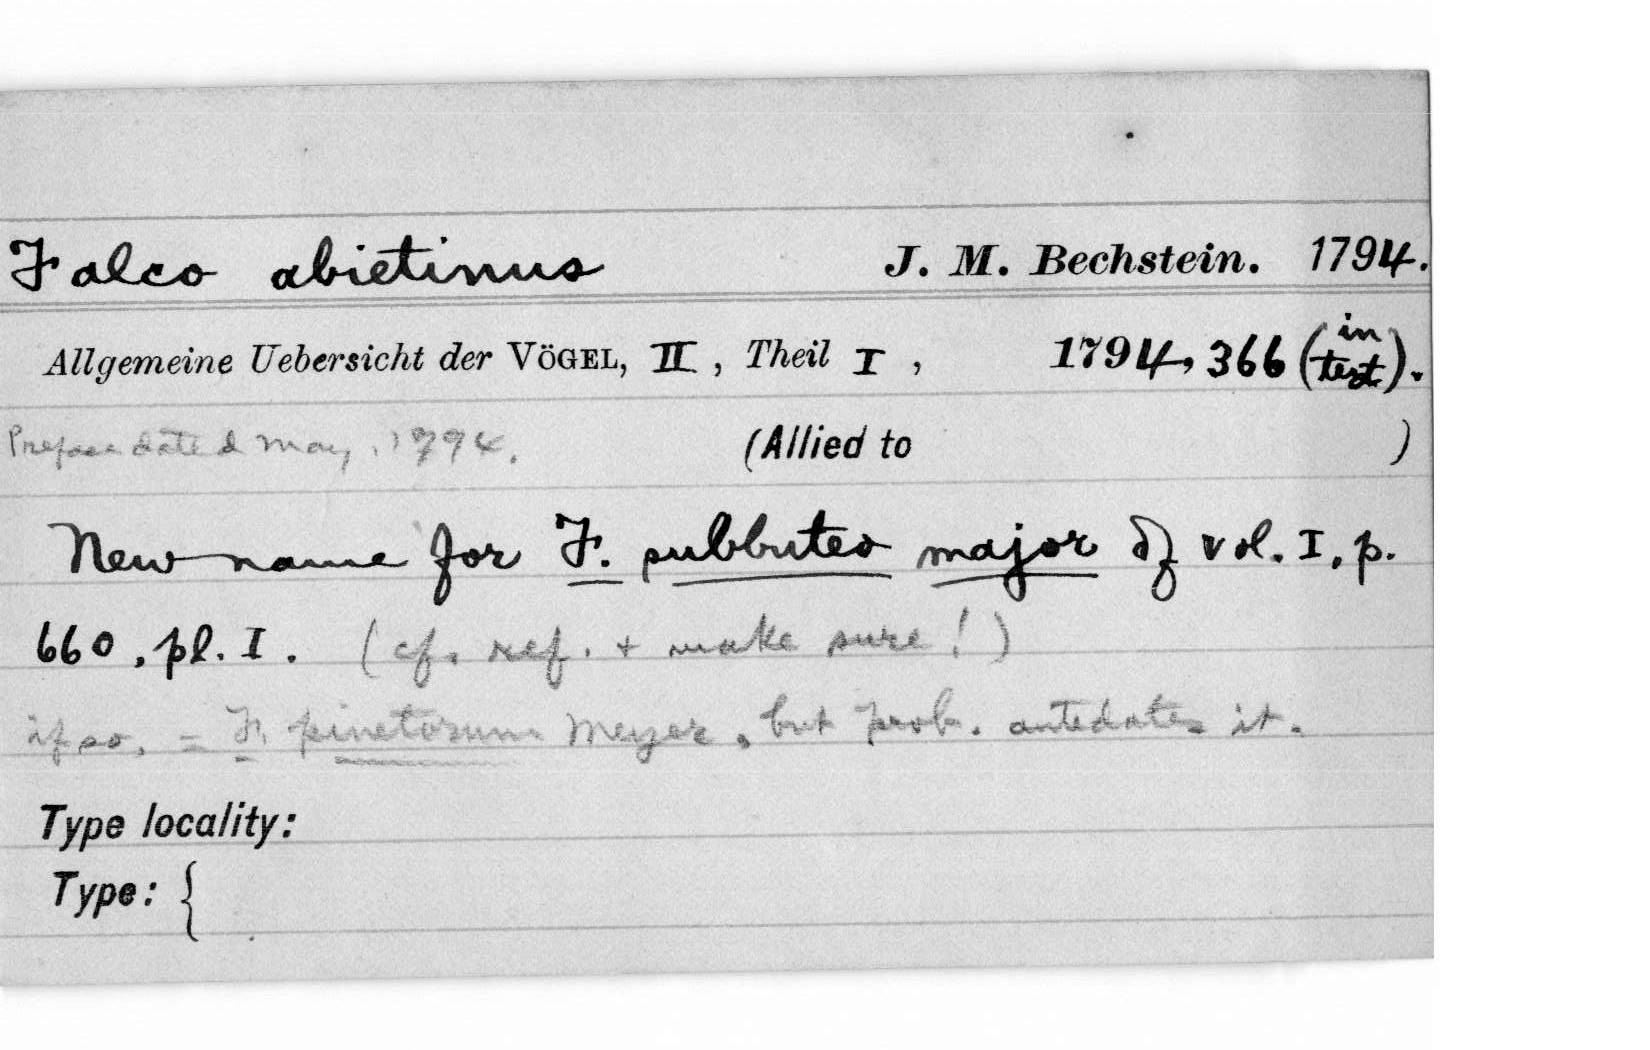 Falco abietinus J. M. Bechstein. 1794.
Allgemeine Uebersicht der VÖGEL, II, Theil I, 1794, 366 (in text).
Preface dated May, 1794. (Allied to )
New name for F. subbuteo major of vol. I, p.
660, pl. I. (cf. ref. + make sure!)
if so, = F. pinetorum Meyer, but prob. antedates it.
Type locality:
Type: {